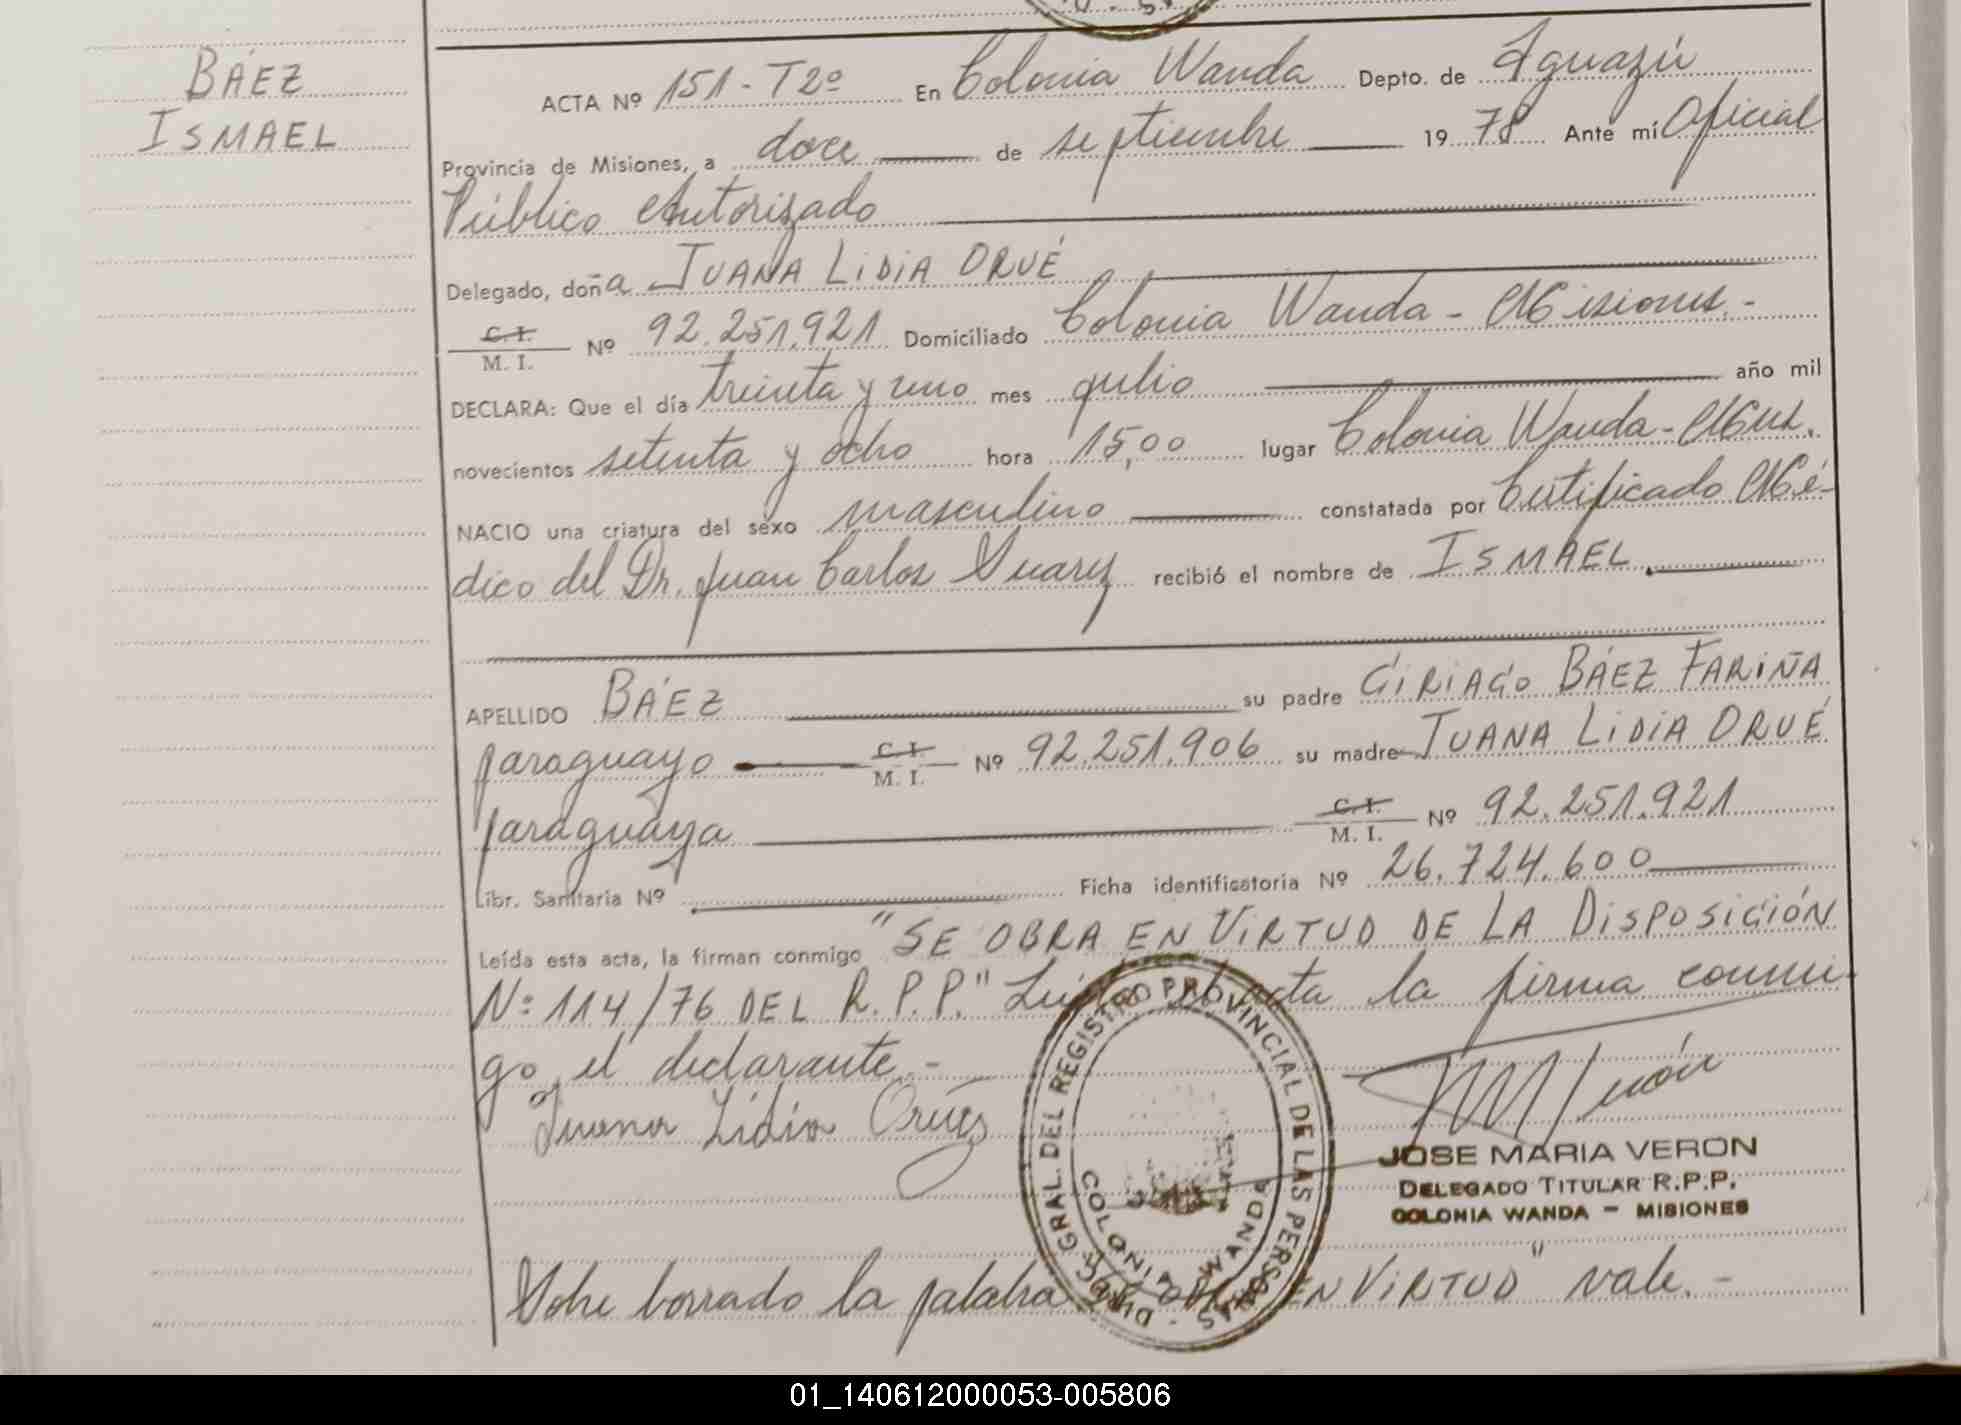 BÁEZ
ISMAEL
ACTA Nº 151-T2º En Colonia Wanda Depto. de Iguazú
Provincia de Misiones, a doce de septiembre 1978 Ante mí Oficial
Público Autorizado
Delegado, doña JUANA LIDIA ORUÉ
C.I. M.I. Nº 92.251.921 Domiciliado Colonia Wanda - Misiones.-
DECLARA: Que el día treinta y uno mes julio año mil
novecientos setenta y ocho hora 15,00 lugar Colonia Wanda - Mnes.
NACIO una criatura del sexo masculino constatada por Certificado Mé-
dico del Dr. Juan Carlos Suarez recibió el nombre de ISMAEL.
APELLIDO BÁEZ su padre CIRIACO BÁEZ FARIÑA
paraguayo C.I. M.I. Nº 92.251.906 su madre JUANA LIDIA ORUÉ
paraguaya C.I. M.I. Nº 92.251.921
Libr. Sanitaria Nº Ficha identificatoria Nº 26.724.600
Leída esta acta, la firman conmigo "SE OBRA EN VIRTUD DE LA DISPOSICIÓN
Nº 114/76 DEL R.P.P." Leída el acta la firma conmi-
go, el declarante.-
Juana Lidia Orué
DIREC. GRAL. DEL REGISTRO PROVINCIAL DE LAS PERSONAS
COLONIA WANDA
JOSE MARIA VERON
DELEGADO TITULAR R.P.P.
COLONIA WANDA - MISIONES
Sobre borrado la palabra EN VIRTUD" vale.-
01_140612000053-005806